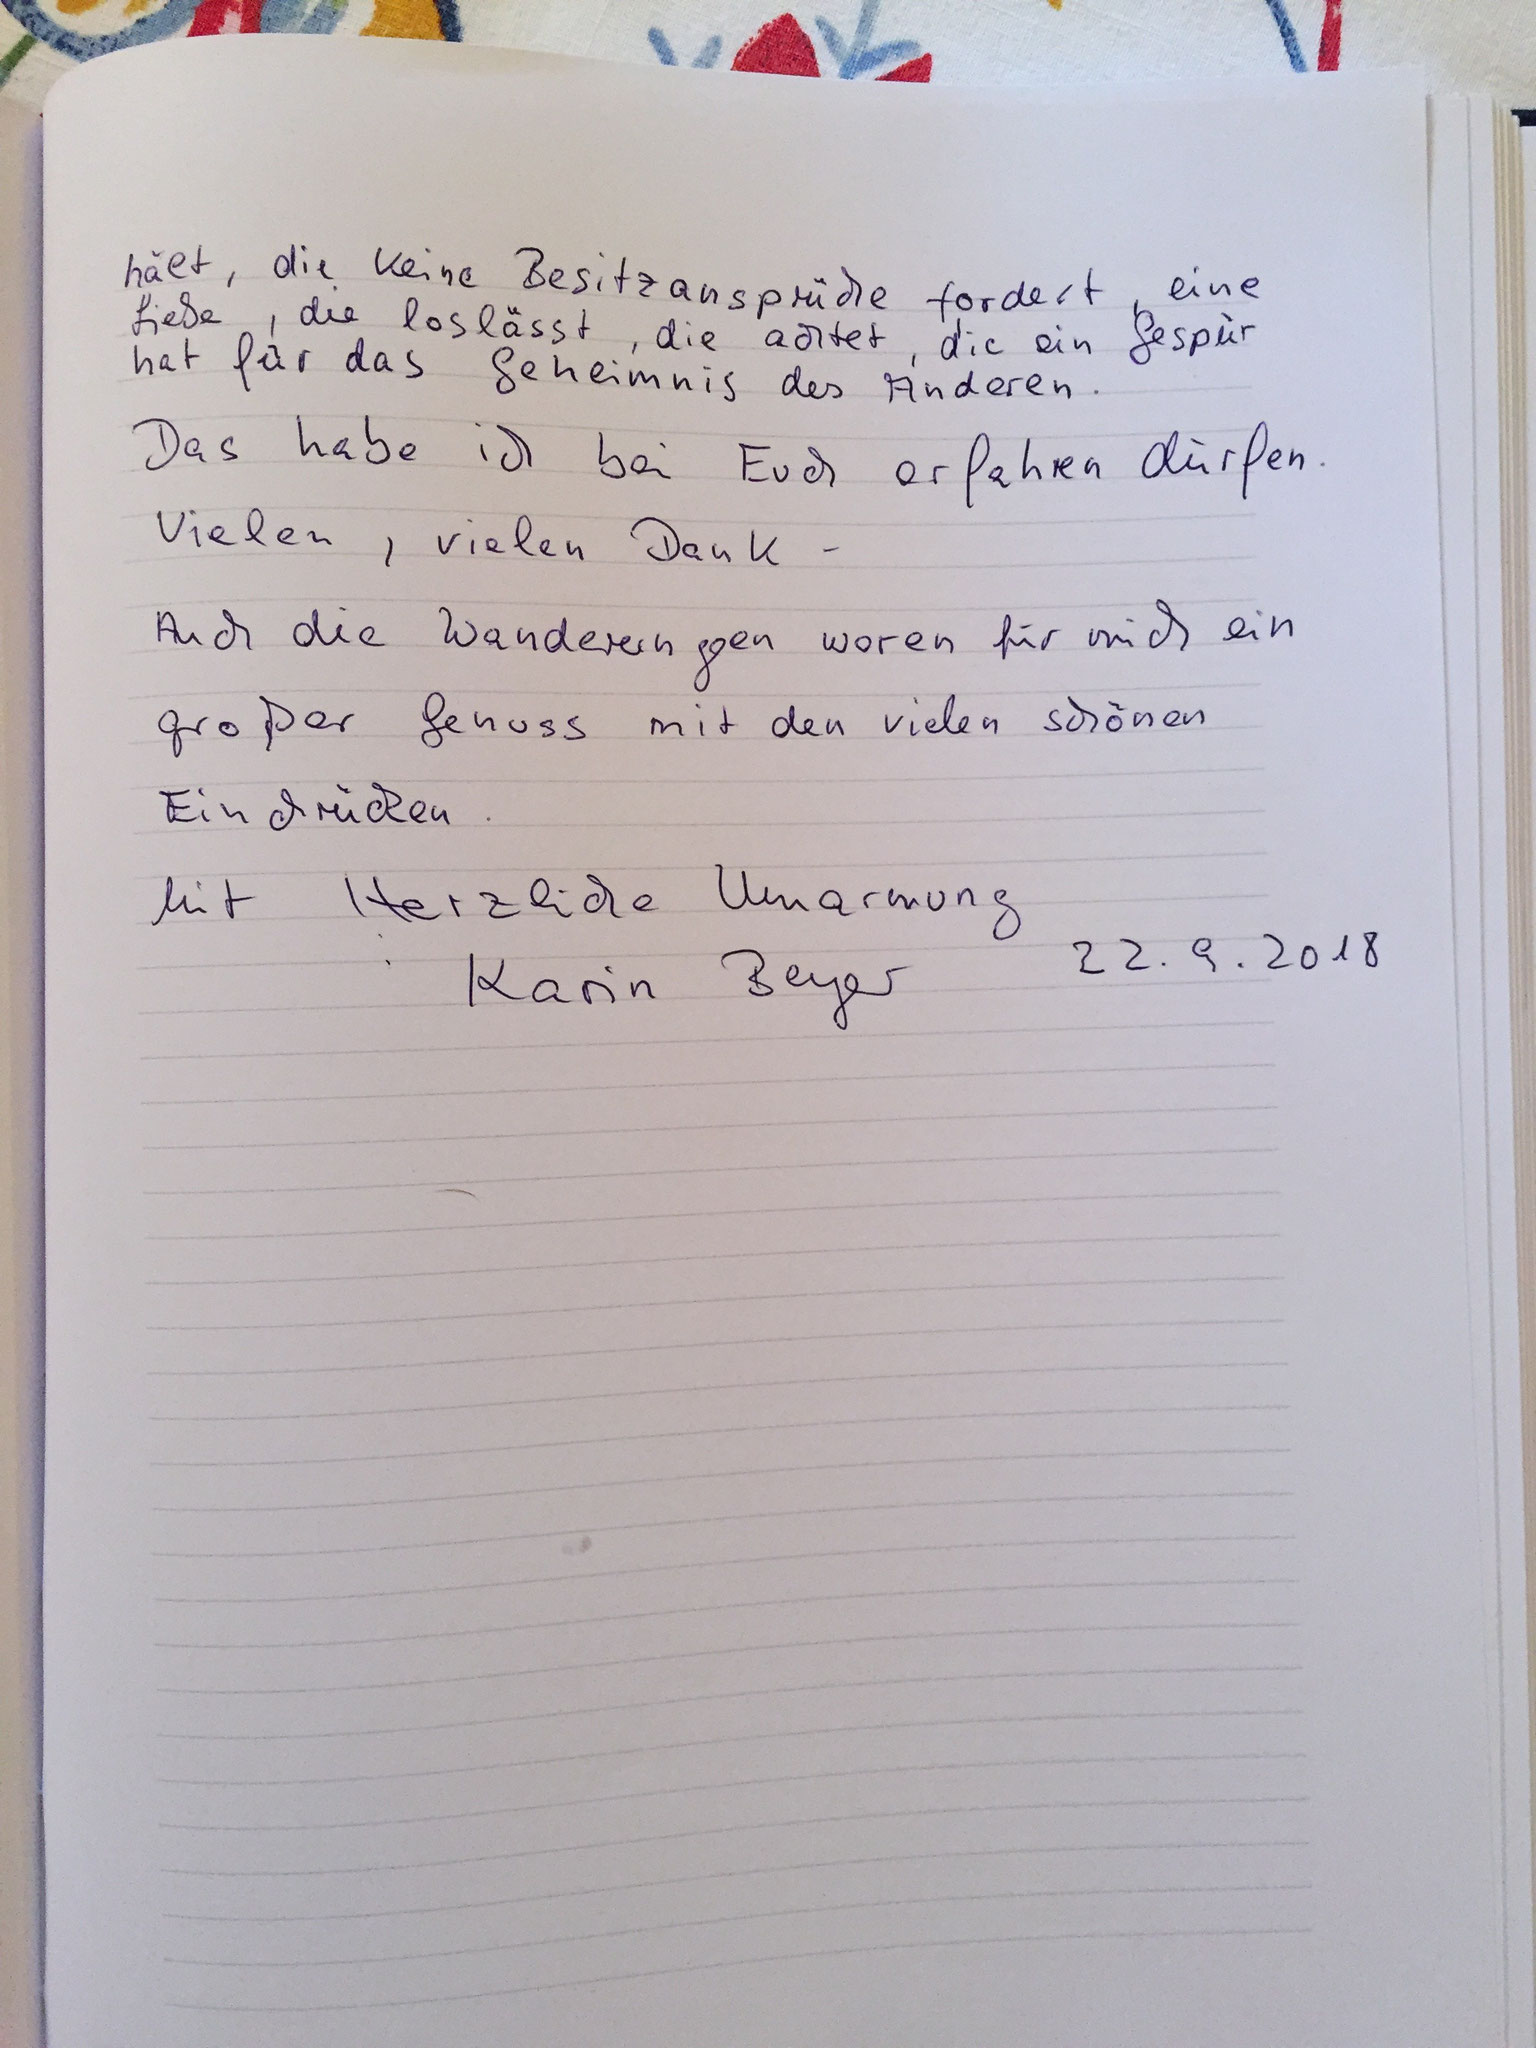 hält, die keine Besitzansprüche fordert, eine
Liebe, die loslässt, die achtet, die ein Gespür
hat für das Geheimnis des Anderen.
Das habe ich bei Euch erfahren dürfen.
Vielen, vielen Dank -
Auch die Wanderungen waren für mich ein
großer Genuss mit den vielen schönen
Eindrücken.
Mit Herzliche Umarmung
Karin Beyer 22.9.2018